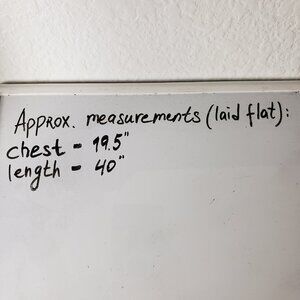 Approx. measurements (laid flat):
chest - 19.5"
length - 40"